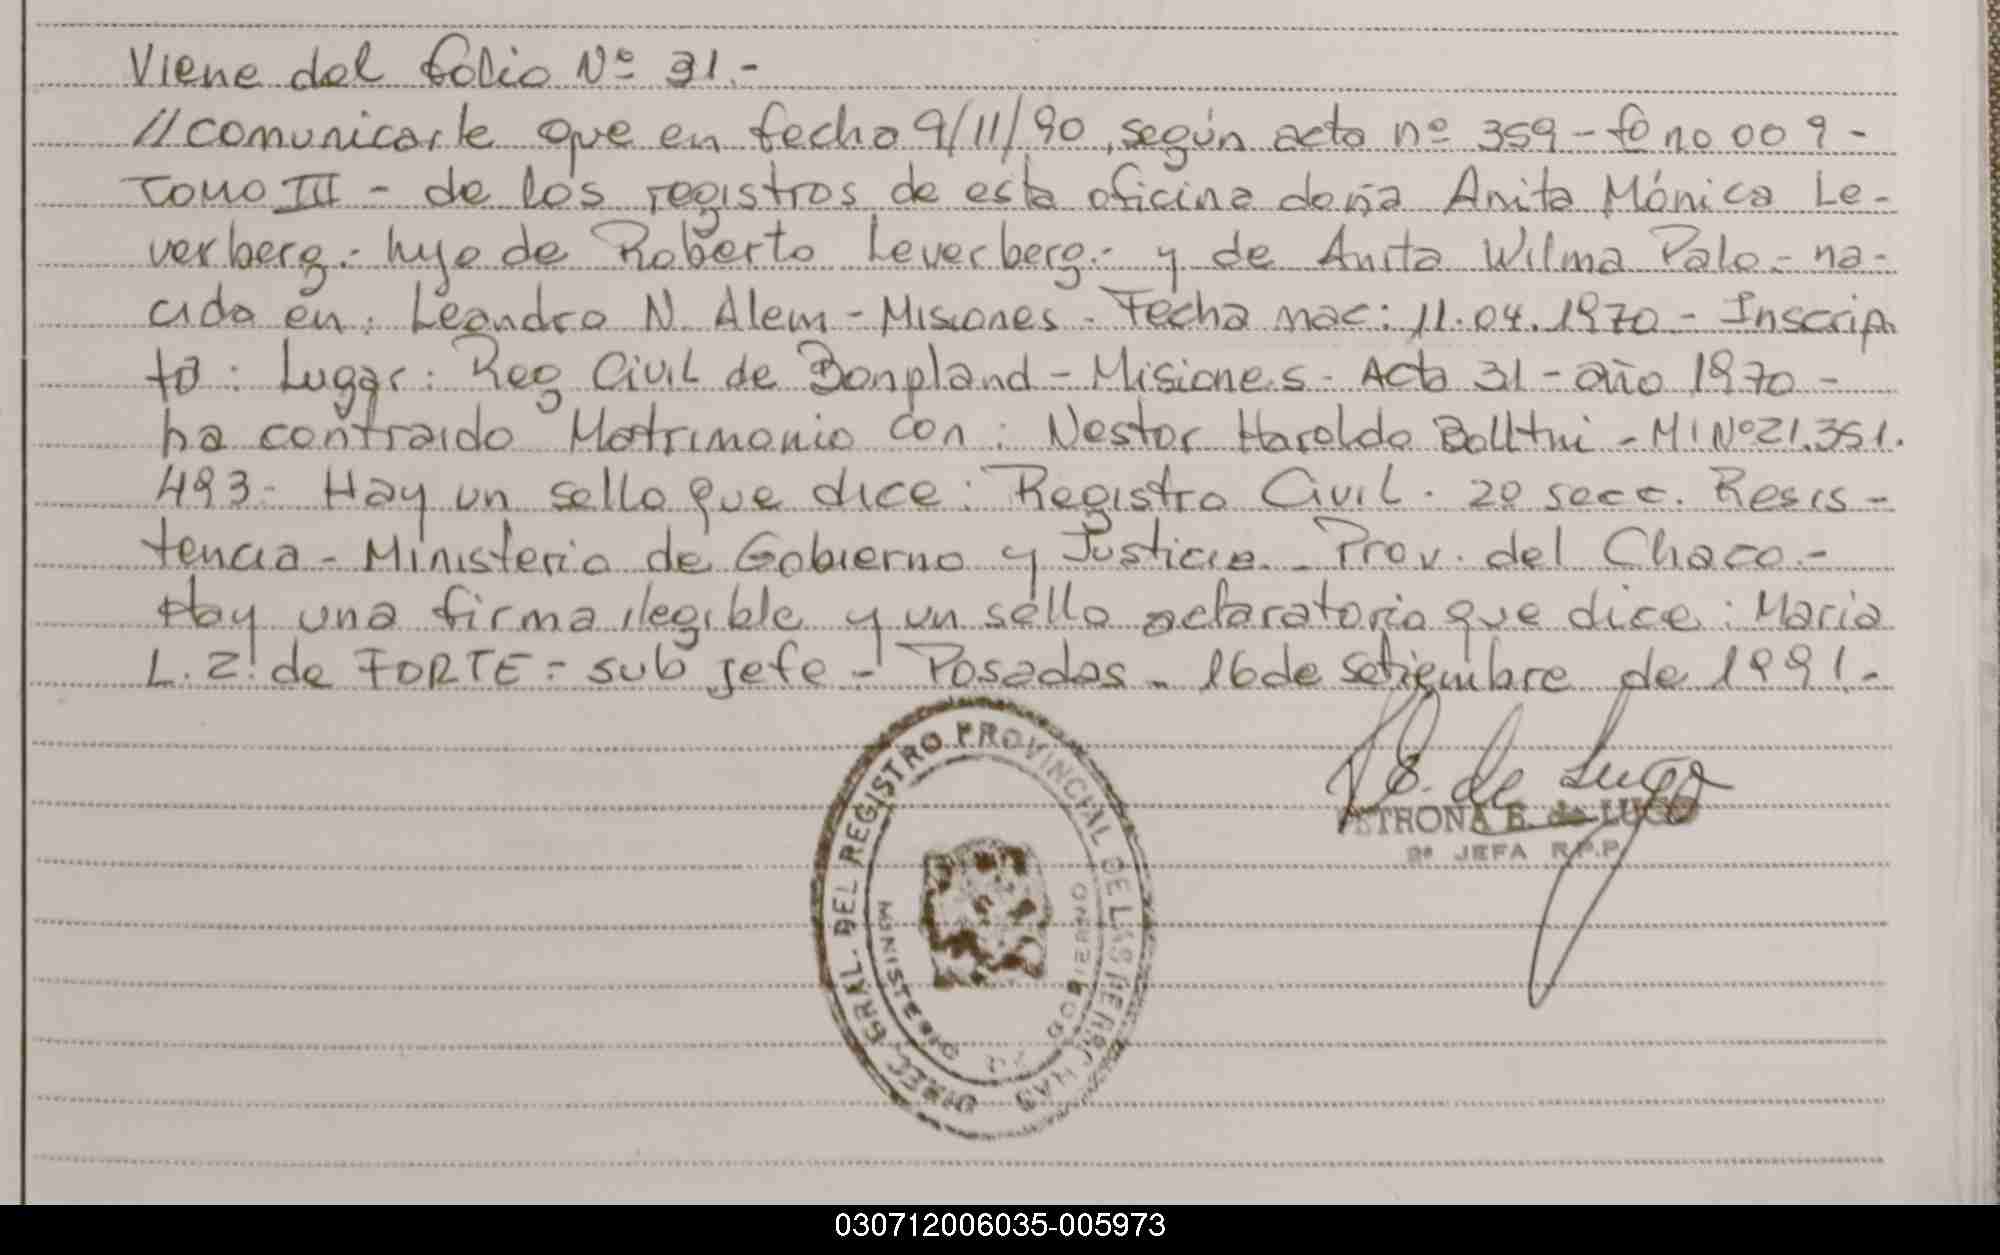 Viene del folio Nº 31.-
//comunicarle que en fecha 9/11/90, según acta nº 359 - fº no 009 -
Tomo III - de los registros de esta oficina doña Anita Mónica Le-
verberg.- hija de Roberto Leverberg.- y de Anita Wilma Palo.- na-
cida en: Leandro N. Alem - Misiones - Fecha nac: 11.04.1970 - Inscrip
to: Lugar: Reg Civil de Bonpland - Misiones - Acta 31 - año 1970 -
ha contraido Matrimonio con: Nestor Haroldo - MI Nº 21.351.
493 - Hay un sello que dice: Registro Civil. 2º secc. Resis-
tencia - Ministerio de Gobierno y Justicia - Prov. del Chaco.-
Hay una firma ilegible y un sello aclaratorio que dice: Maria
L. Z. de FORTE = sub jefe - Posadas - 16 de Setiembre de 1991.-
de Lugo
PETRONA E. de LUGO
2ª JEFA R.P.P.
DIREC. GRAL. DEL REGISTRO PROVINCIAL DE LAS PERSONAS
MINISTERIO DE GOBIERNO
030712006035-005973